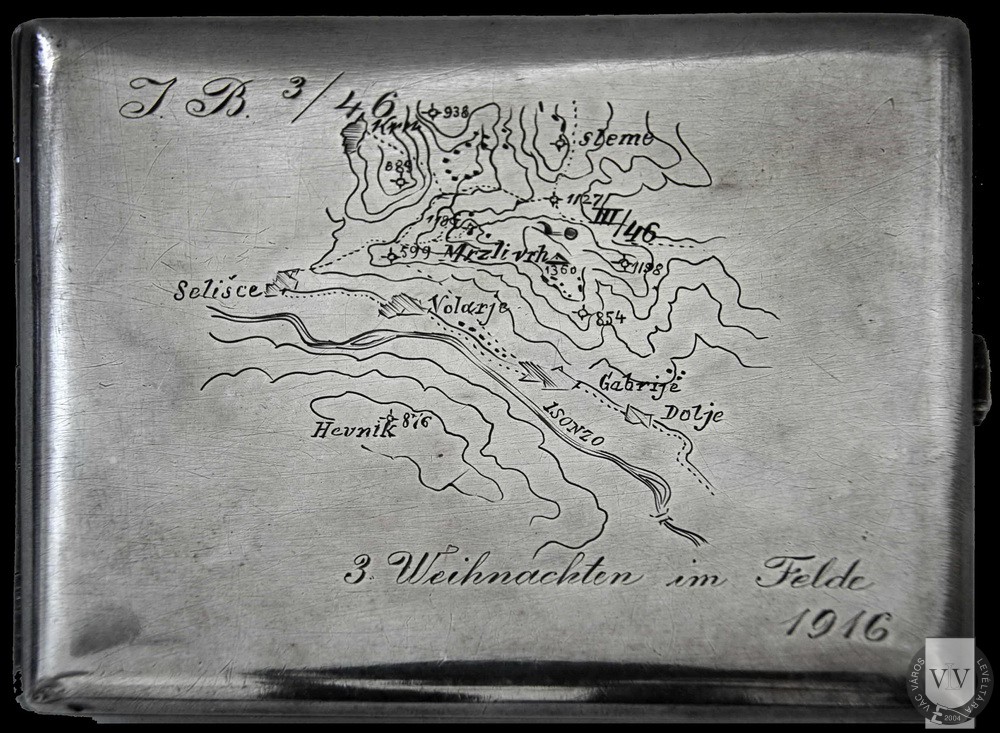 J. B. 3/46
Krn
938
889
sleme
1127
III/46
1186
599
Mrzli vrh
1360
1198
Selišce
Volarje
854
Gabrije
Dolje
ISONZO
Hevnik
876
3. Weihnachten im Felde
1916
VÁC VÁROS LEVÉLTÁRA
VLV
2004